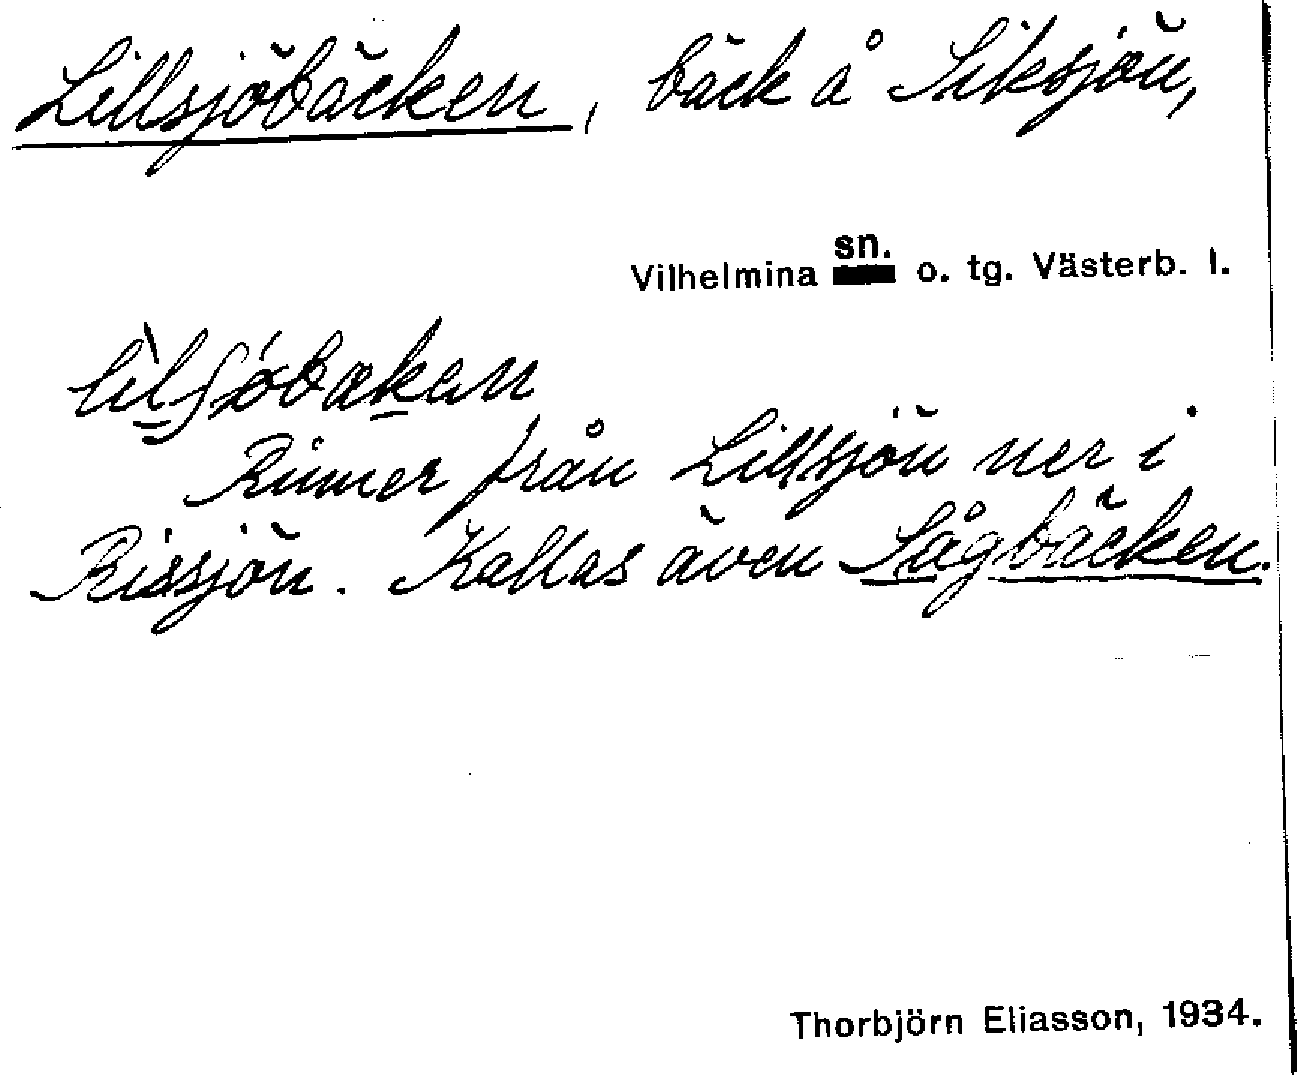 Lillsjöbäcken, bäck å Siksjön,
Vilhelmina sn. o. tg. Västerb. l.
Rinner från Lillsjön ner i
Rissjön. Kallas även Sågbäcken.
Thorbjörn Eliasson, 1934.